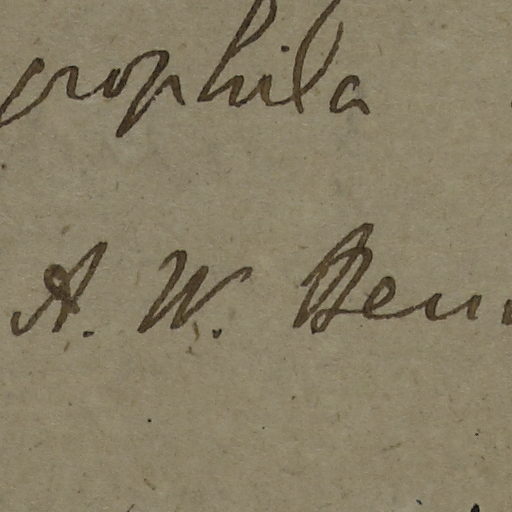 grophila
A. W. Benn